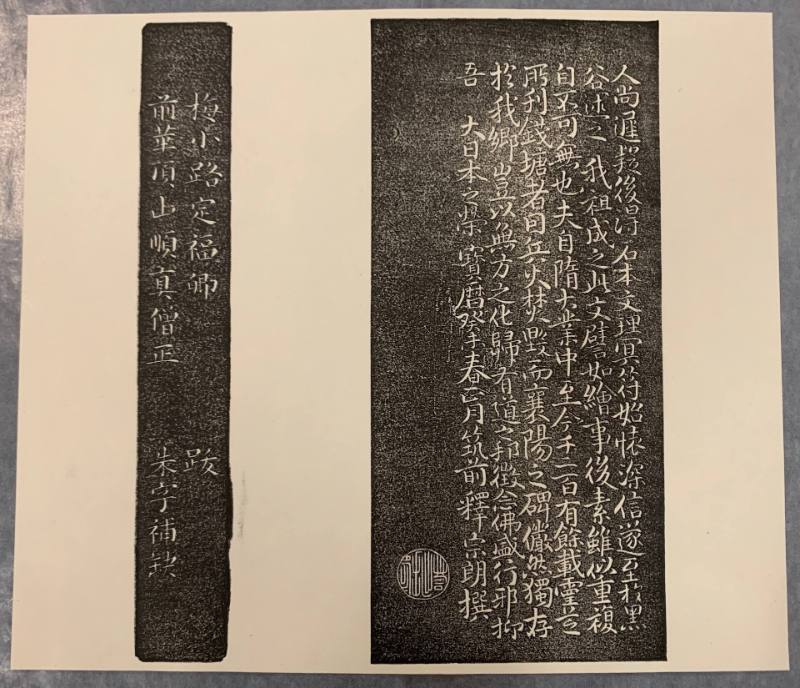 人尚遲疑後得石本文理冥符始懐深信遂至於黒
谷述之我祖成之此文譬如繪事後素雖似重複
自不可無也夫自隋大業中至今千二百有餘載靈芝
所刊錢塘者因兵火焚毀而襄陽之碑儼然獨存
於我郷豈以無方之化歸有道之邦徴念佛盛行邪抑
吾 大日本之榮寶暦癸未春正月筑前釋宗朗撰
梅小路定福卿 跋
前華頂山順真僧正 朱字補缺